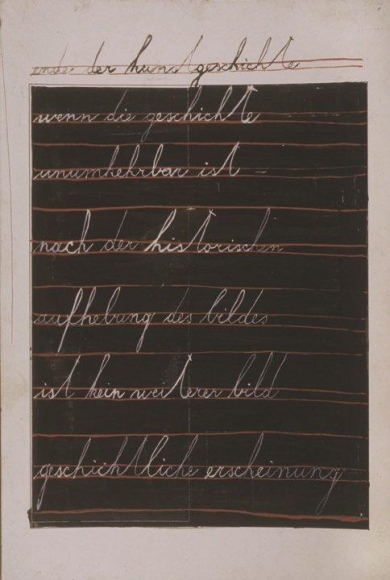 ende der kunstgeschichte
wenn die geschichte
unumkehrbar ist -
nach der historischen
aufhebung des bildes
ist kein weiterer bild
geschichtliche erscheinung